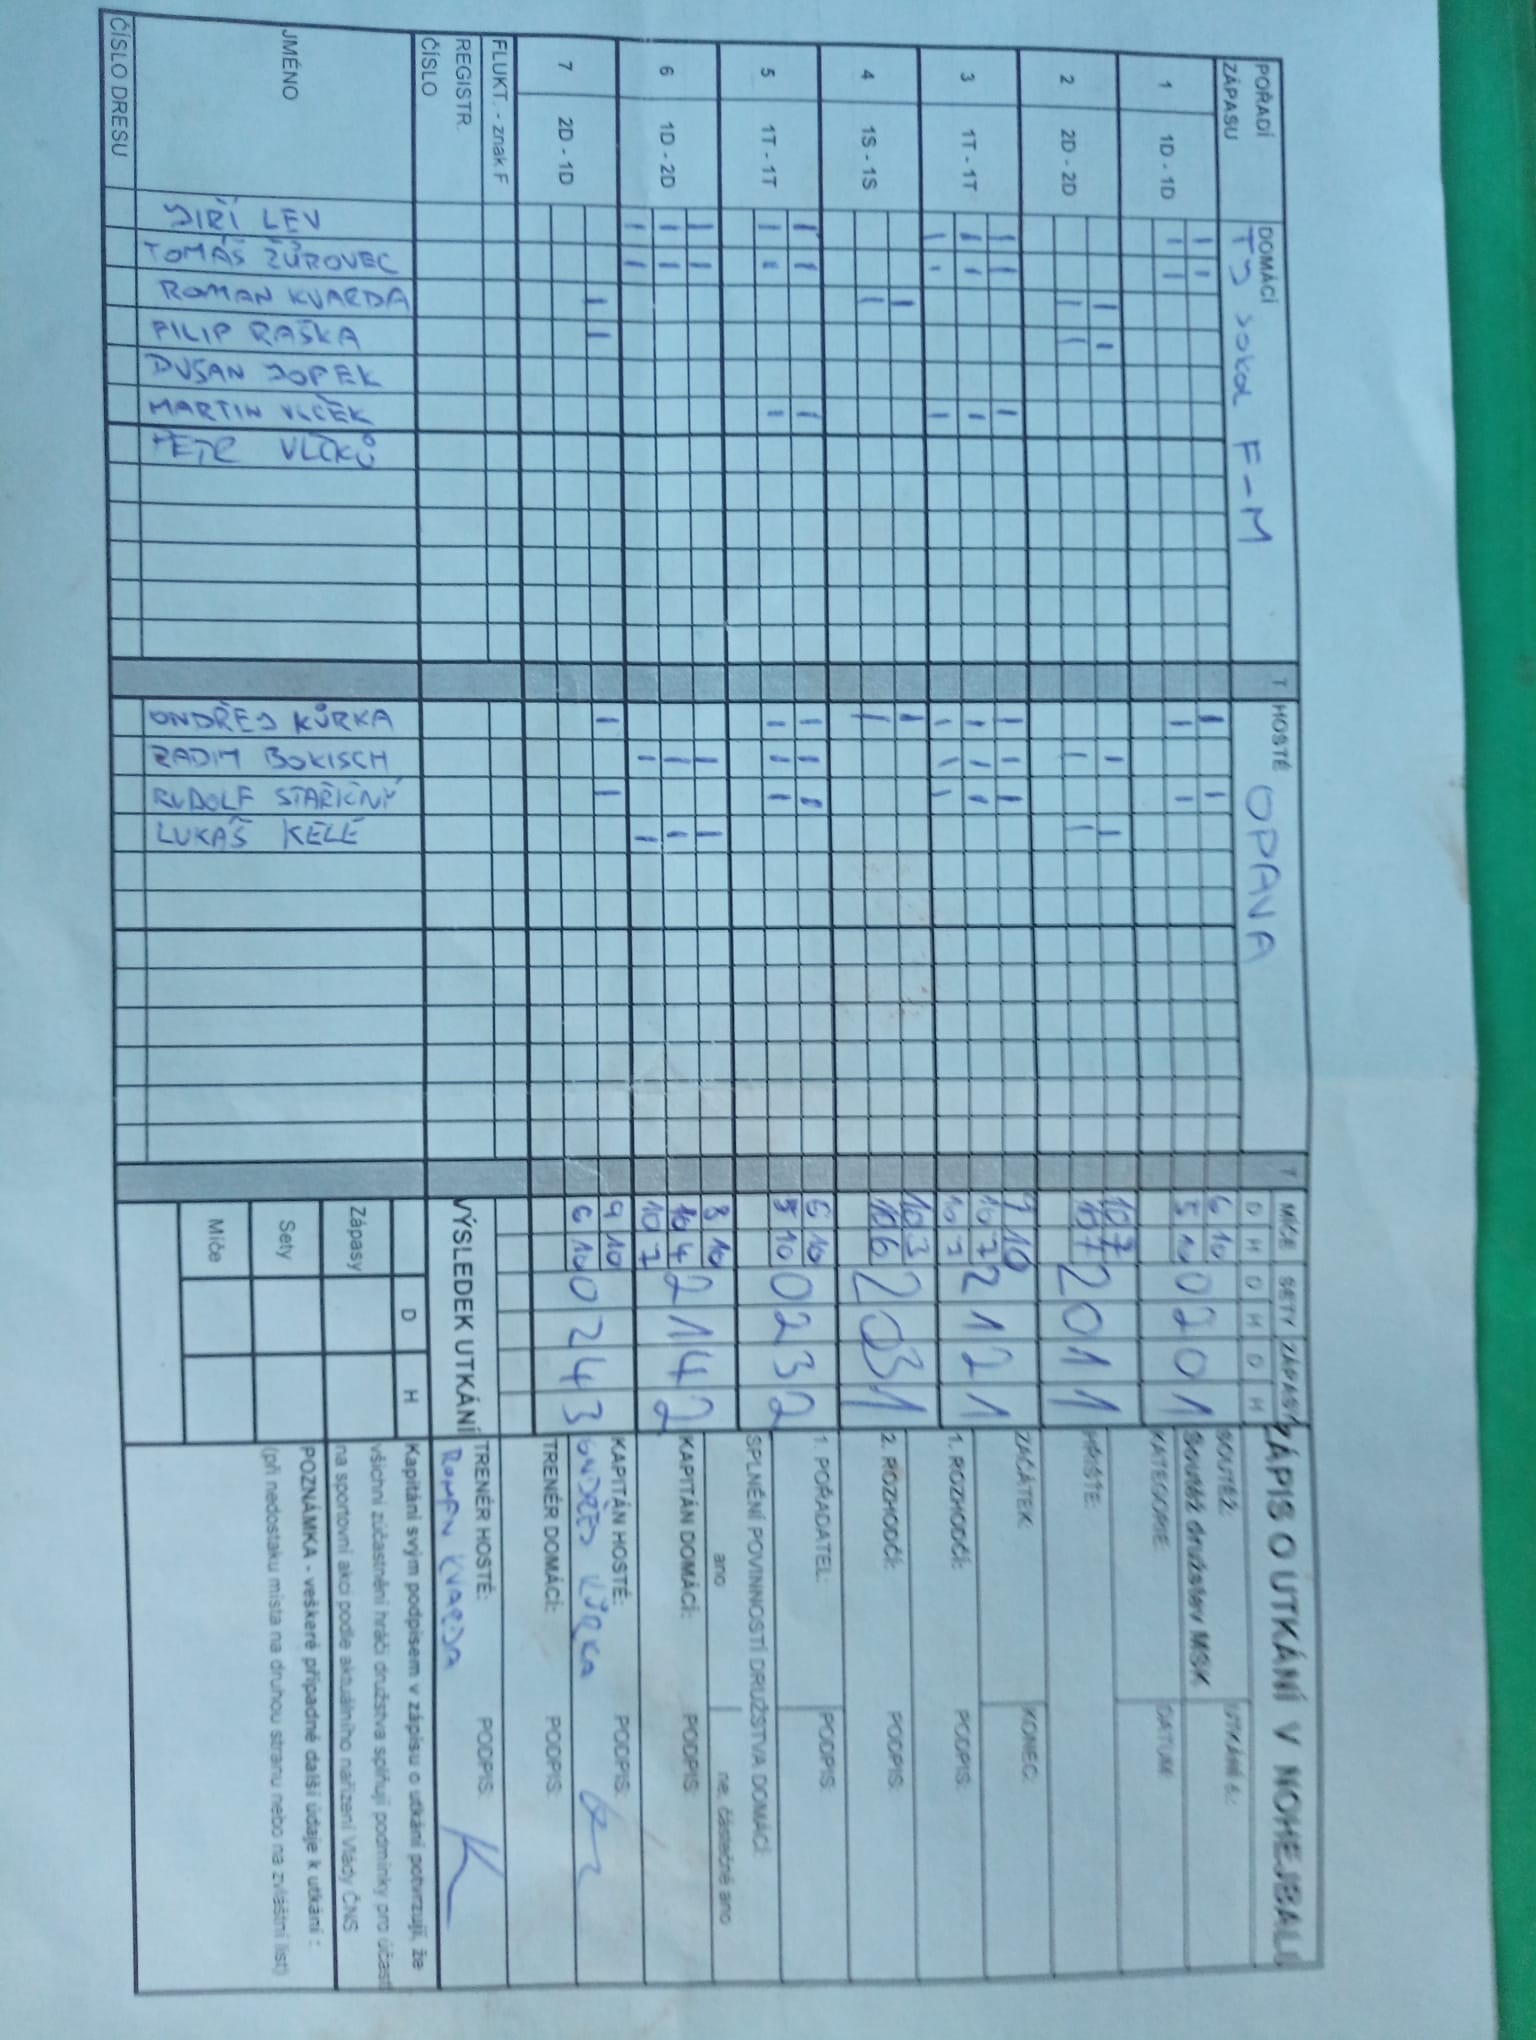 ZÁPIS O UTKÁNÍ V NOHEJBALU
POŘADÍ ZÁPASU
DOMÁCÍ TJ SOKOL F-M
T
HOSTÉ OPAVA
T
MÍČE SETY ZÁPASY
D H D H D H
1 1D - 1D
6 10
5 10 0 2 0 1
2 2D - 2D
10 7
10 7 2 0 1 1
3 1T - 1T
9 10
10 7
10 7 2 1 2 1
4 1S - 1S
10 3
10 6 2 0 3 1
5 1T - 1T
6 10
5 10 0 2 3 2
6 1D - 2D
8 10
10 4
10 7 2 1 4 2
7 2D - 1D
9 10
6 10 0 2 4 3
FLUKT. - znak F
REGISTR. ČÍSLO
JMÉNO
ČÍSLO DRESU
JIŘÍ LEV
TOMÁŠ ŽŮROVEC
ROMAN KVARDA
FILIP RAŠKA
DUSAN
MARTIN VLČEK
PETR VLČKŮ
ONDŘEJ KŮRKA
RADIM BOKISCH
RUDOLF STAŘIČNÝ
LUKÁŠ KELE
VÝSLEDEK UTKÁNÍ
D H
Zápasy
Sety
Míče
SOUTĚŽ: UTKÁNÍ č.:
Soutěž družstev MSK
KATEGORIE: DATUM:
HŘIŠTĚ:
ZAČÁTEK: KONEC:
1. ROZHODČÍ: PODPIS:
2. ROZHODČÍ: PODPIS:
1. POŘADATEL: PODPIS:
SPLNĚNÍ POVINNOSTÍ DRUŽSTVA DOMÁCÍ:
ano ne, částečně ano
KAPITÁN DOMÁCÍ: PODPIS:
KAPITÁN HOSTÉ: PODPIS:
ONDŘEJ KŮRKA
TRENÉR DOMÁCÍ: PODPIS:
TRENÉR HOSTÉ: PODPIS:
ROMAN KVARDA
Kapitáni svým podpisem v zápisu o utkání potvrzují, že
všichni zúčastnění hráči družstva splňují podmínky pro účast
na sportovní akci podle aktuálního nařízení Vlády ČNS
POZNÁMKA - veškeré případné další údaje k utkání :
(při nedostaku místa na druhou stranu nebo na zvláštní list)